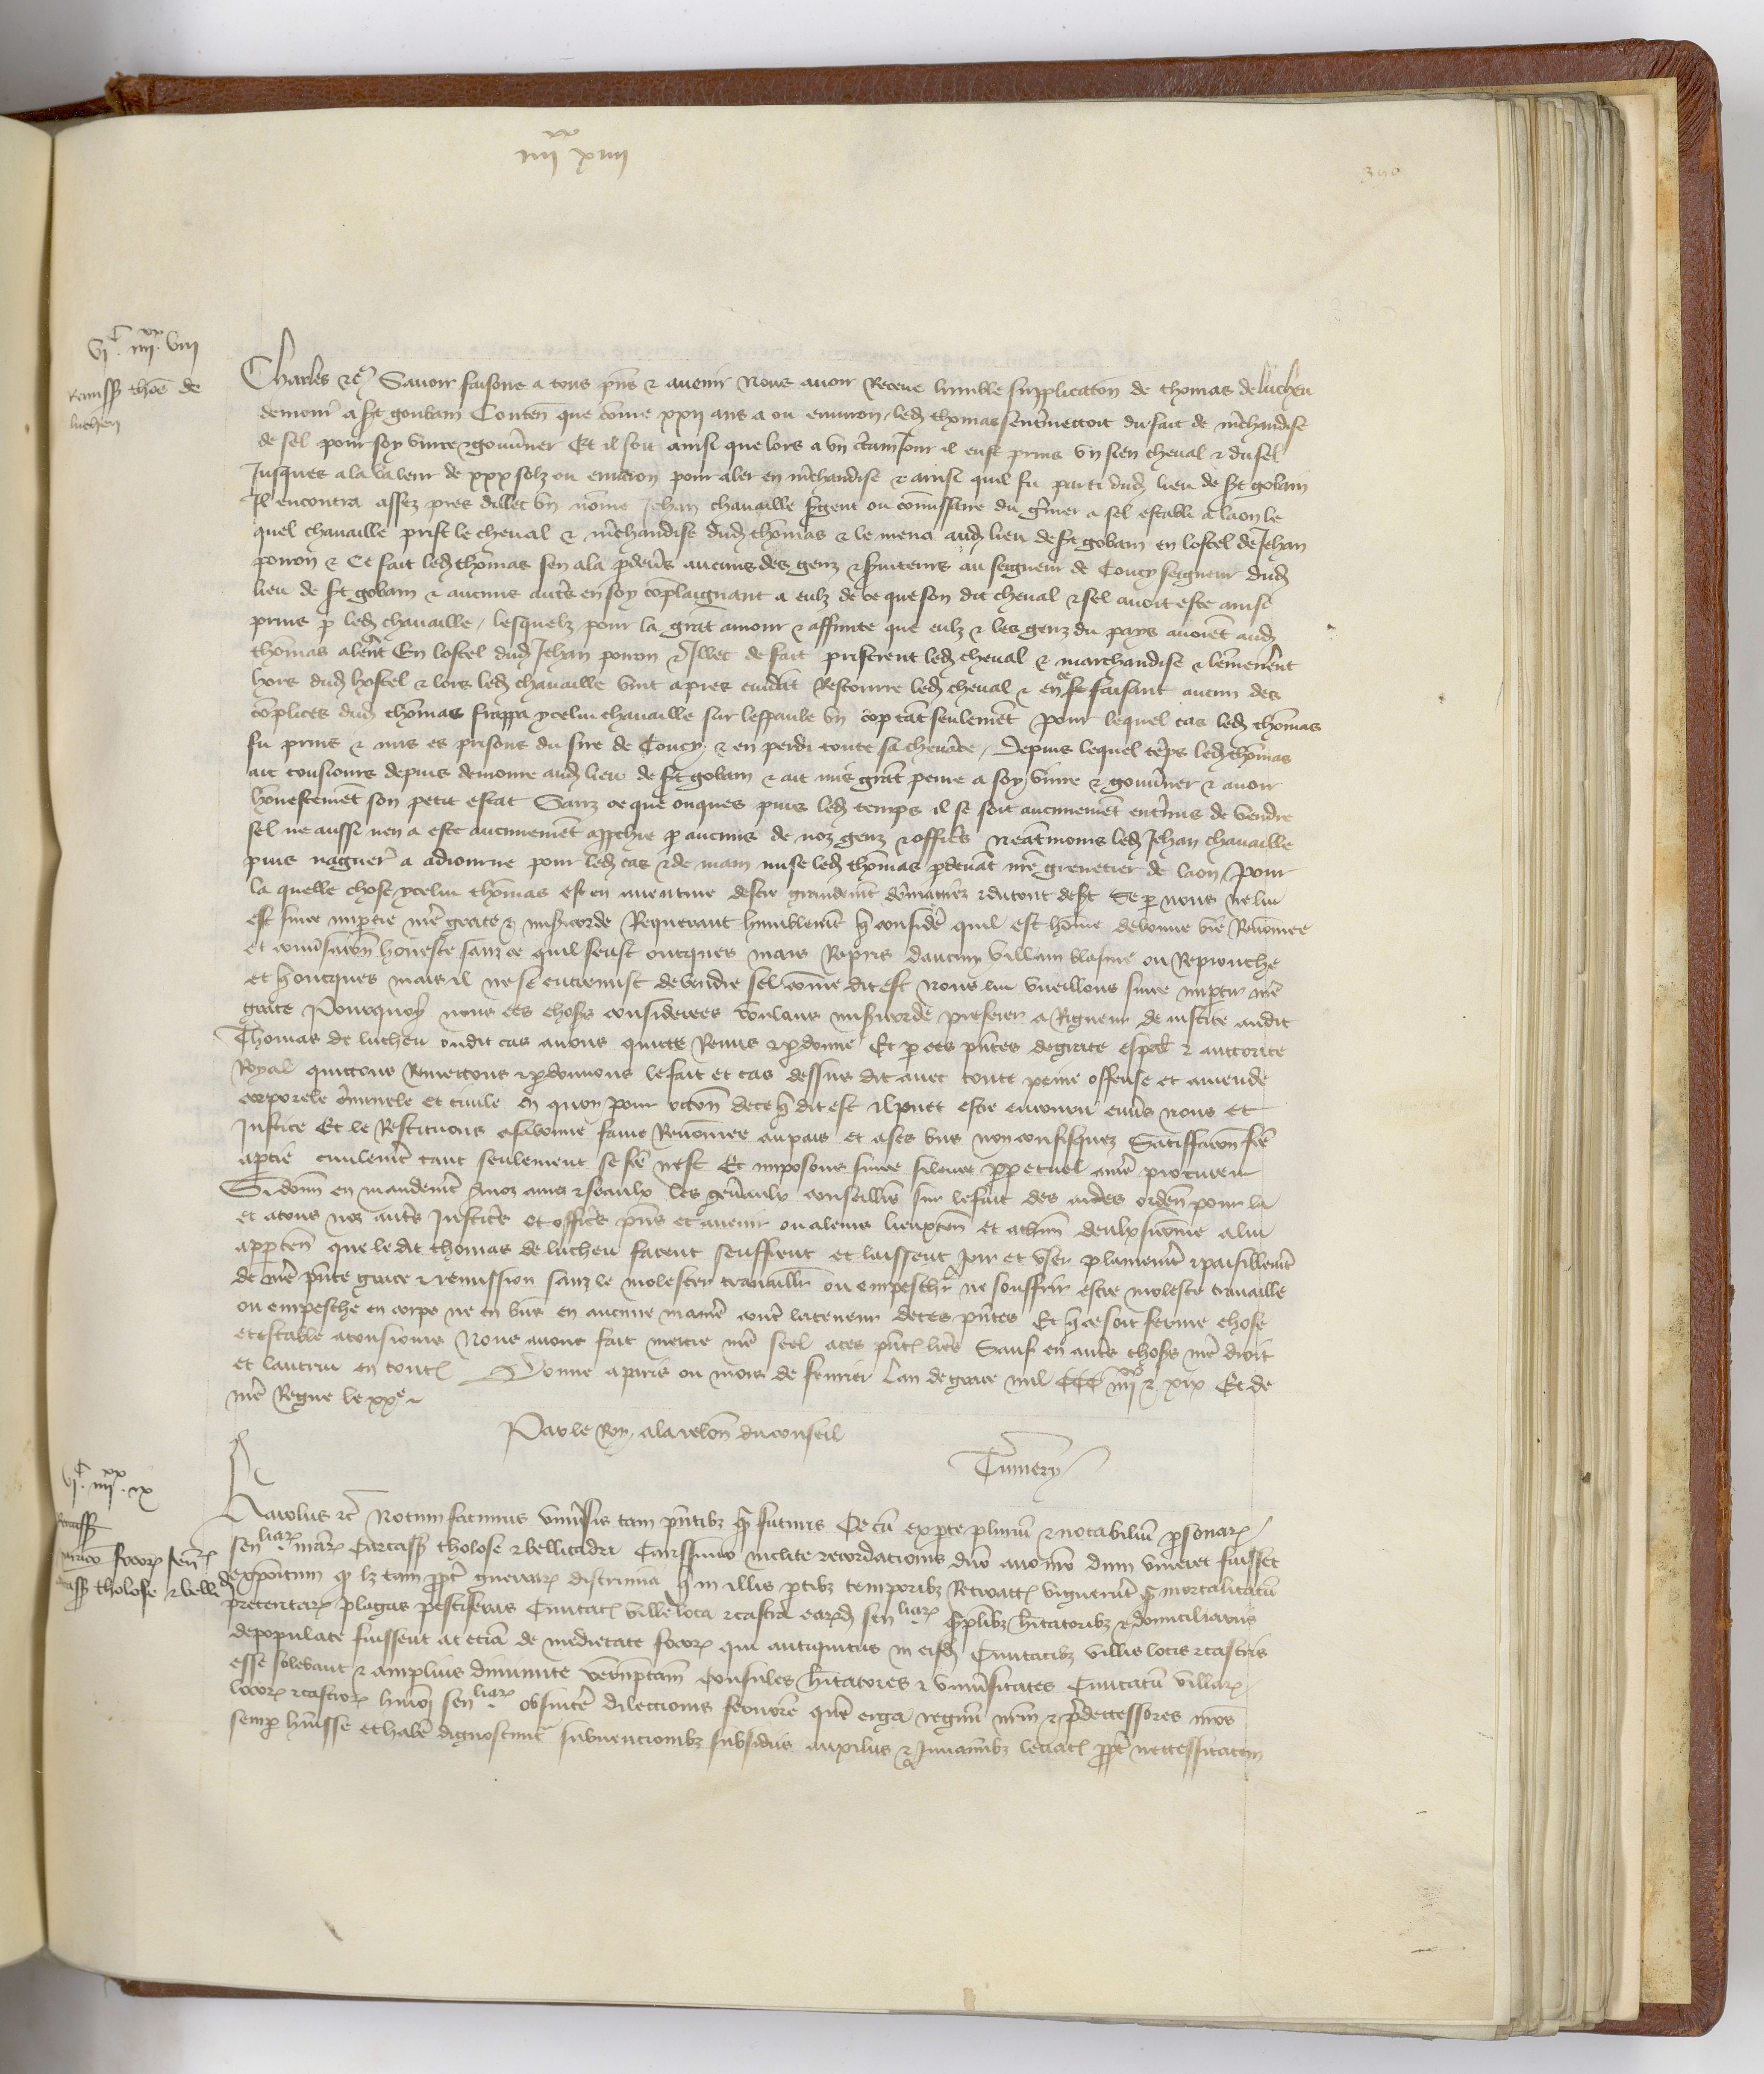 iiiixx xiiii
390
vic. iiiixx. viii
Remiss thoe de
lucheu
Charles etc Savoir faisons a tous pns et avenir Nous avoir Receue humble supplicacion de thomas de lucheu
demour a st goubain Conten que come xxii ans a ou environ, led thomas sentmettoit du fait de mchandise
de sel pour soy vivre et gouvner Et il soit ainsi que lors a un ctain Jour il eust prins un sien cheval et du sel
Jusques a la valeur de xxx solz ou environ pour aler en mchandise et ainsi quil fu parti dud lieu de st gobain
Il encontra assez pres dillec un nome Jehan chavaille sgent ou comissaire du gnier a sel establi a laon le
quel chavaille prist le cheval et mchandise dud thomas et le mena aud lieu de st gobain en lostel de Jehan
ponon et Ce fait led thomas sen ala pdevs aucuns des genz et sviteurs au seigneur de Coucy seigneur dud
lieu de st gobain et aucuns auts en soy complaignant a eulz de ce que son dit cheval et sel avoit este ainsi
prins p led chavaille, lesquelz pour la grat amour et affinite que eulz et les genz du pays avoiet aud
thomas alert En lostel dud Jehan ponon et Illec de fait pristrent led cheval et marchandise et lemenent
hors dud hostel et lors led chavaille vint apres cuidat Rescourre led cheval et en ce faisant aucun des
complices dud thomas frappa ycelui chavaille sur lespaule un cop tat seulemet pour lequel cas led thomas
fu prins et mis es prisons du sire de Coucy, et en perdi toute sa chevace, Depuis lequel teps led thomas
ait tousiours depuis demoure aud lieu de st gobain et ait mis grat peine a soy vivre et gouvner et avoir
honestemet son petit estat Sanz ce que onques puis led temps il se soit aucunemet entmis de vendre
sel ne aussi nen a este aucunemet approchie p aucuns de noz genz et offics neatmoins led Jehan chavaille
puis naguer a adiourne pour led cas et de main mise led thomas pdevat nre grenetier de laon, pour
la quelle chose ycelui thomas est en aventure destre grandemt domaigiez et du tout dest Se p nous ne lui
est sur ce impartie nre grace et misicorde Requerant humblemt q consider quil est home de bonne vie Renomee
et conversacion honeste sanz ce quil feust oncques mais Repris daucun villain blasme ou Reprouche
et q oncques mais il ne se entremist de vendre sel come dit est nous lui vueillons sur ce imptir nre
grace Pourquoy nous ces choses considerees voulans misicorde preferer a Rigueur de iustice audit
Thomas de lucheu oudit cas avons quicte Remis et pdonne Et p ces pntes de grace espal et auctorite
Royal quictons Remettons et pdonnons le fait et cas dessus dit avec toute peine offense et amende
corporele criminele et civile en quoy pour occon de ce q dit est il puet estre encouru envs nous et
Justice Et le Restituons a sa bonne fame Renomee au pais et a ses bns non confisquez Satisfacion fce
a ptie civilemt tant seulement se fce nest Et imposons sur ce silence ppetuel a nre procureur
Si donn en mandemt a noz amez et feaulx les genaulx conseillrs sur le fait des aides ordenn pour la
et a tous noz auts Justics et offics pns et avenir ou a leurs lieuxten et a chun deulx si come a lui
apptenn que le dit thomas de lucheu facent seuffrent et laissent Joir et user plainemt et paisiblemt
de nre pnte grace et remission sanz le molester travaillr ou empeschr ne souffrir estre moleste travaille
ou empesche en corps ne en bns en aucune manie cont la teneur de ces pntes Et q ce soit ferme chose
et estable a tousiours Nous avons fait mettre nre seel a ces pntes lres Sauf en auts choses nre droit
et lautrui en toutes Donne a paris ou mois de fevrier Lan de grace mil CCC iiiixx et xix Et de
nre Regne le xxe
Par le Roy, a la relon du conseil
Tumery
vic. iiiixx. ix
Karolus etc Notum facimus univsis tam pntibz q futuris Q cu ex pte plurium et notabilium psonar
sen liar nrar Carcass tholose et bellicadri Carissimo inclite recordacionis dno avo nro dum viveret fuisset
expositum q lz tam ppt guerrar discrimina q in illis ptibz temporibz Retroactis viguerunt q mortalitatum
focor senr
cass tholose et bellid
preteritar plagas pestiferas Civitates ville loca et castra eard sen liar hitatoribz et domiciliariis
depopulate fuissent ac etia de medietate focor qui antiquitus in eisd Civitatibz villis locis et castris
esse solebant et amplius diminute veruptam Consules hitatores et univsitates Civitatu villar
locor et castror huiod sen liar obsvate dilectionis fervore que erga regnu nrm et predecessores nros
semp huisse et habe dignoscunt subvencionibz subsidiis auxiliis et Juvaminibz ppt necessitatem